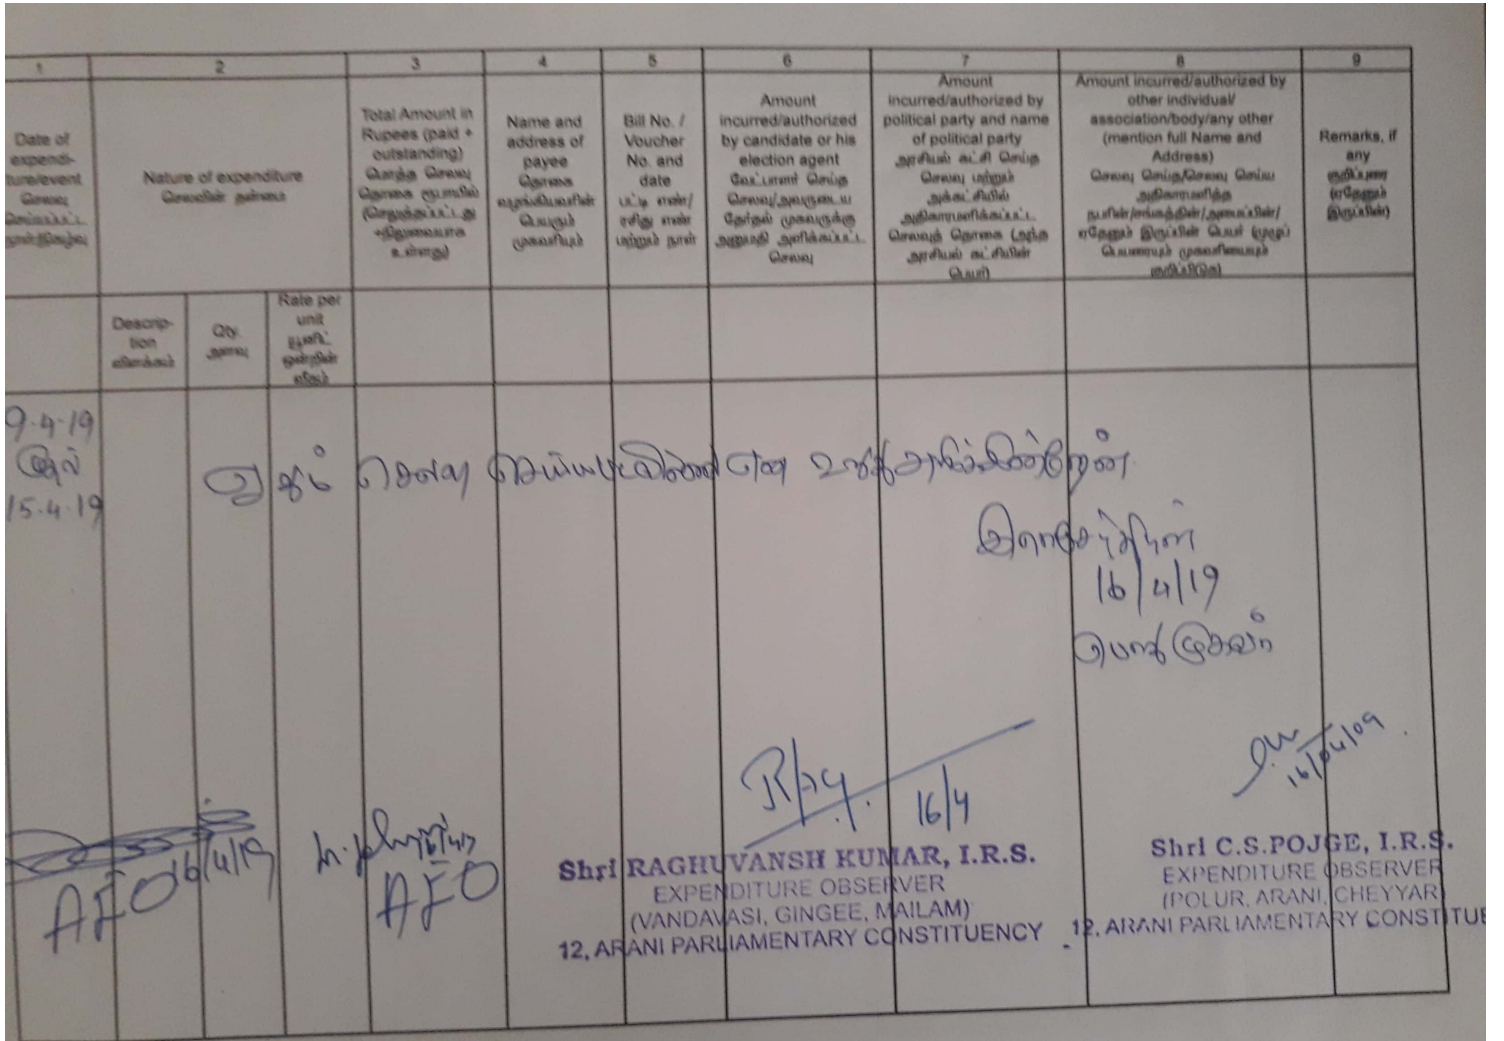 1 2 3 4 5 6 7 8 9
Date of
expendi-
ture/event
செலவு
செய்யப்பட்ட
நாள்/நிகழ்வு
Nature of expenditure
செலவின் தன்மை
Total Amount in
Rupees (paid +
outstanding)
மொத்த செலவு
தொகை ரூபாயில்
(செலுத்தப்பட்டது
+நிலுவையாக
உள்ளது)
Name and
address of
payee
தொகை
பெயரும்
முகவரியும்
Bill No. /
Voucher
No. and
date
பட்டி எண்/
ரசீது எண்
மற்றும் நாள்
Amount
incurred/authorized
by candidate or his
election agent
வேட்பாளர் செய்த
செலவு/அவருடைய
தேர்தல் முகவருக்கு
அனுமதி அளிக்கப்பட்ட
செலவு
Amount
incurred/authorized by
political party and name
of political party
அரசியல் கட்சி செய்த
செலவு மற்றும்
அக்கட்சியில்
அதிகாரமளிக்கப்பட்ட
செலவுத் தொகை (அந்த
அரசியல் கட்சியின்
பெயர்)
Amount incurred/authorized by
other individual/
association/body/any other
(mention full Name and
Address)
செலவு செய்த/செலவு செய்ய
அதிகாரமளித்த
நபரின்/சங்கத்தின்/அமைப்பின்/
ஏதேனும் இருப்பின் பெயர் (முழுப்
பெயரையும் முகவரியையும்
குறிப்பிடுக)
Remarks, if
any
குறிப்புரை
(ஏதேனும்
இருப்பின்)
Descrip-
tion
விளக்கம்
Qty.
அளவு
Rate per
unit
யூனிட்
ஒன்றின்
விலை
9-4-19
முதல்
15-4-19
ஏதும் செலவு செய்யபடவில்லை என உறுதியளிக்கின்றேன்
16/4/19
16/4
16/04/09
16/4/19
AEO
AEO
Shri RAGHUVANSH KUMAR, I.R.S.
EXPENDITURE OBSERVER
(VANDAVASI, GINGEE, MAILAM)
12, ARANI PARLIAMENTARY CONSTITUENCY
Shri C.S.POJGE, I.R.S.
EXPENDITURE OBSERVER
(POLUR, ARANI, CHEYYAR)
12, ARANI PARLIAMENTARY CONSTITUE